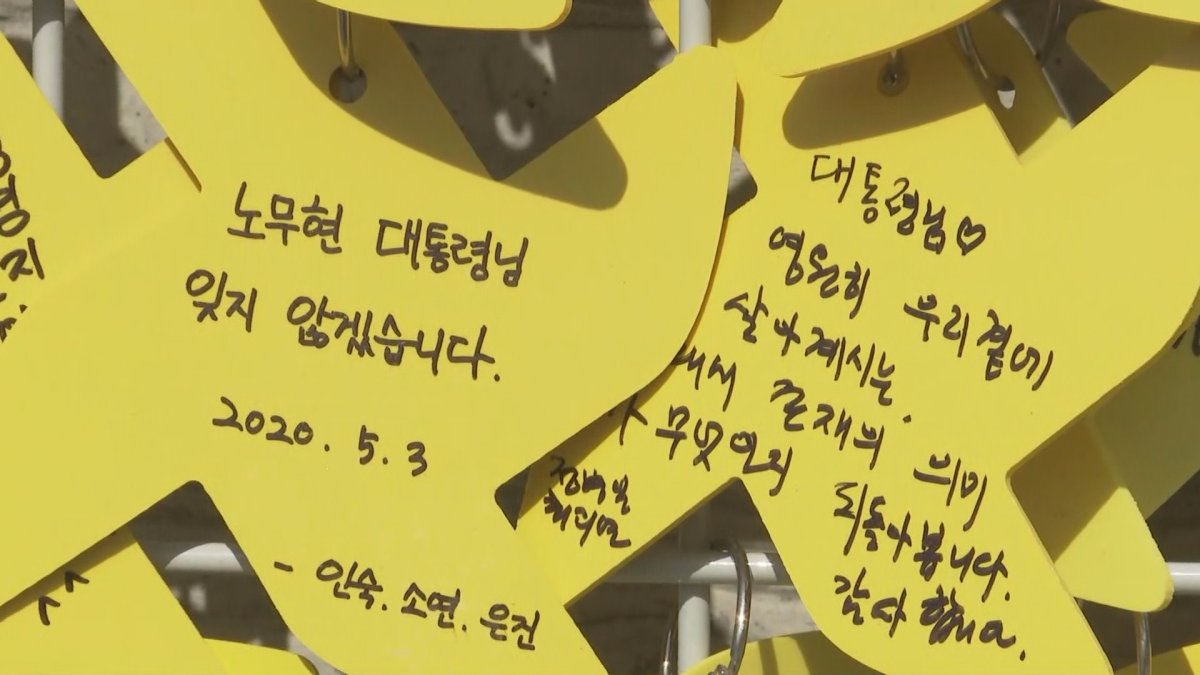 노무현 대통령님
잊지 않겠습니다.
2020. 5. 3
- 인숙. 소연. 은진
대통령님♡
영원히 우리곁에
살아계시는.
존재의 의미
무엇인지
되돌아봅니다.
감사합니다.
^^